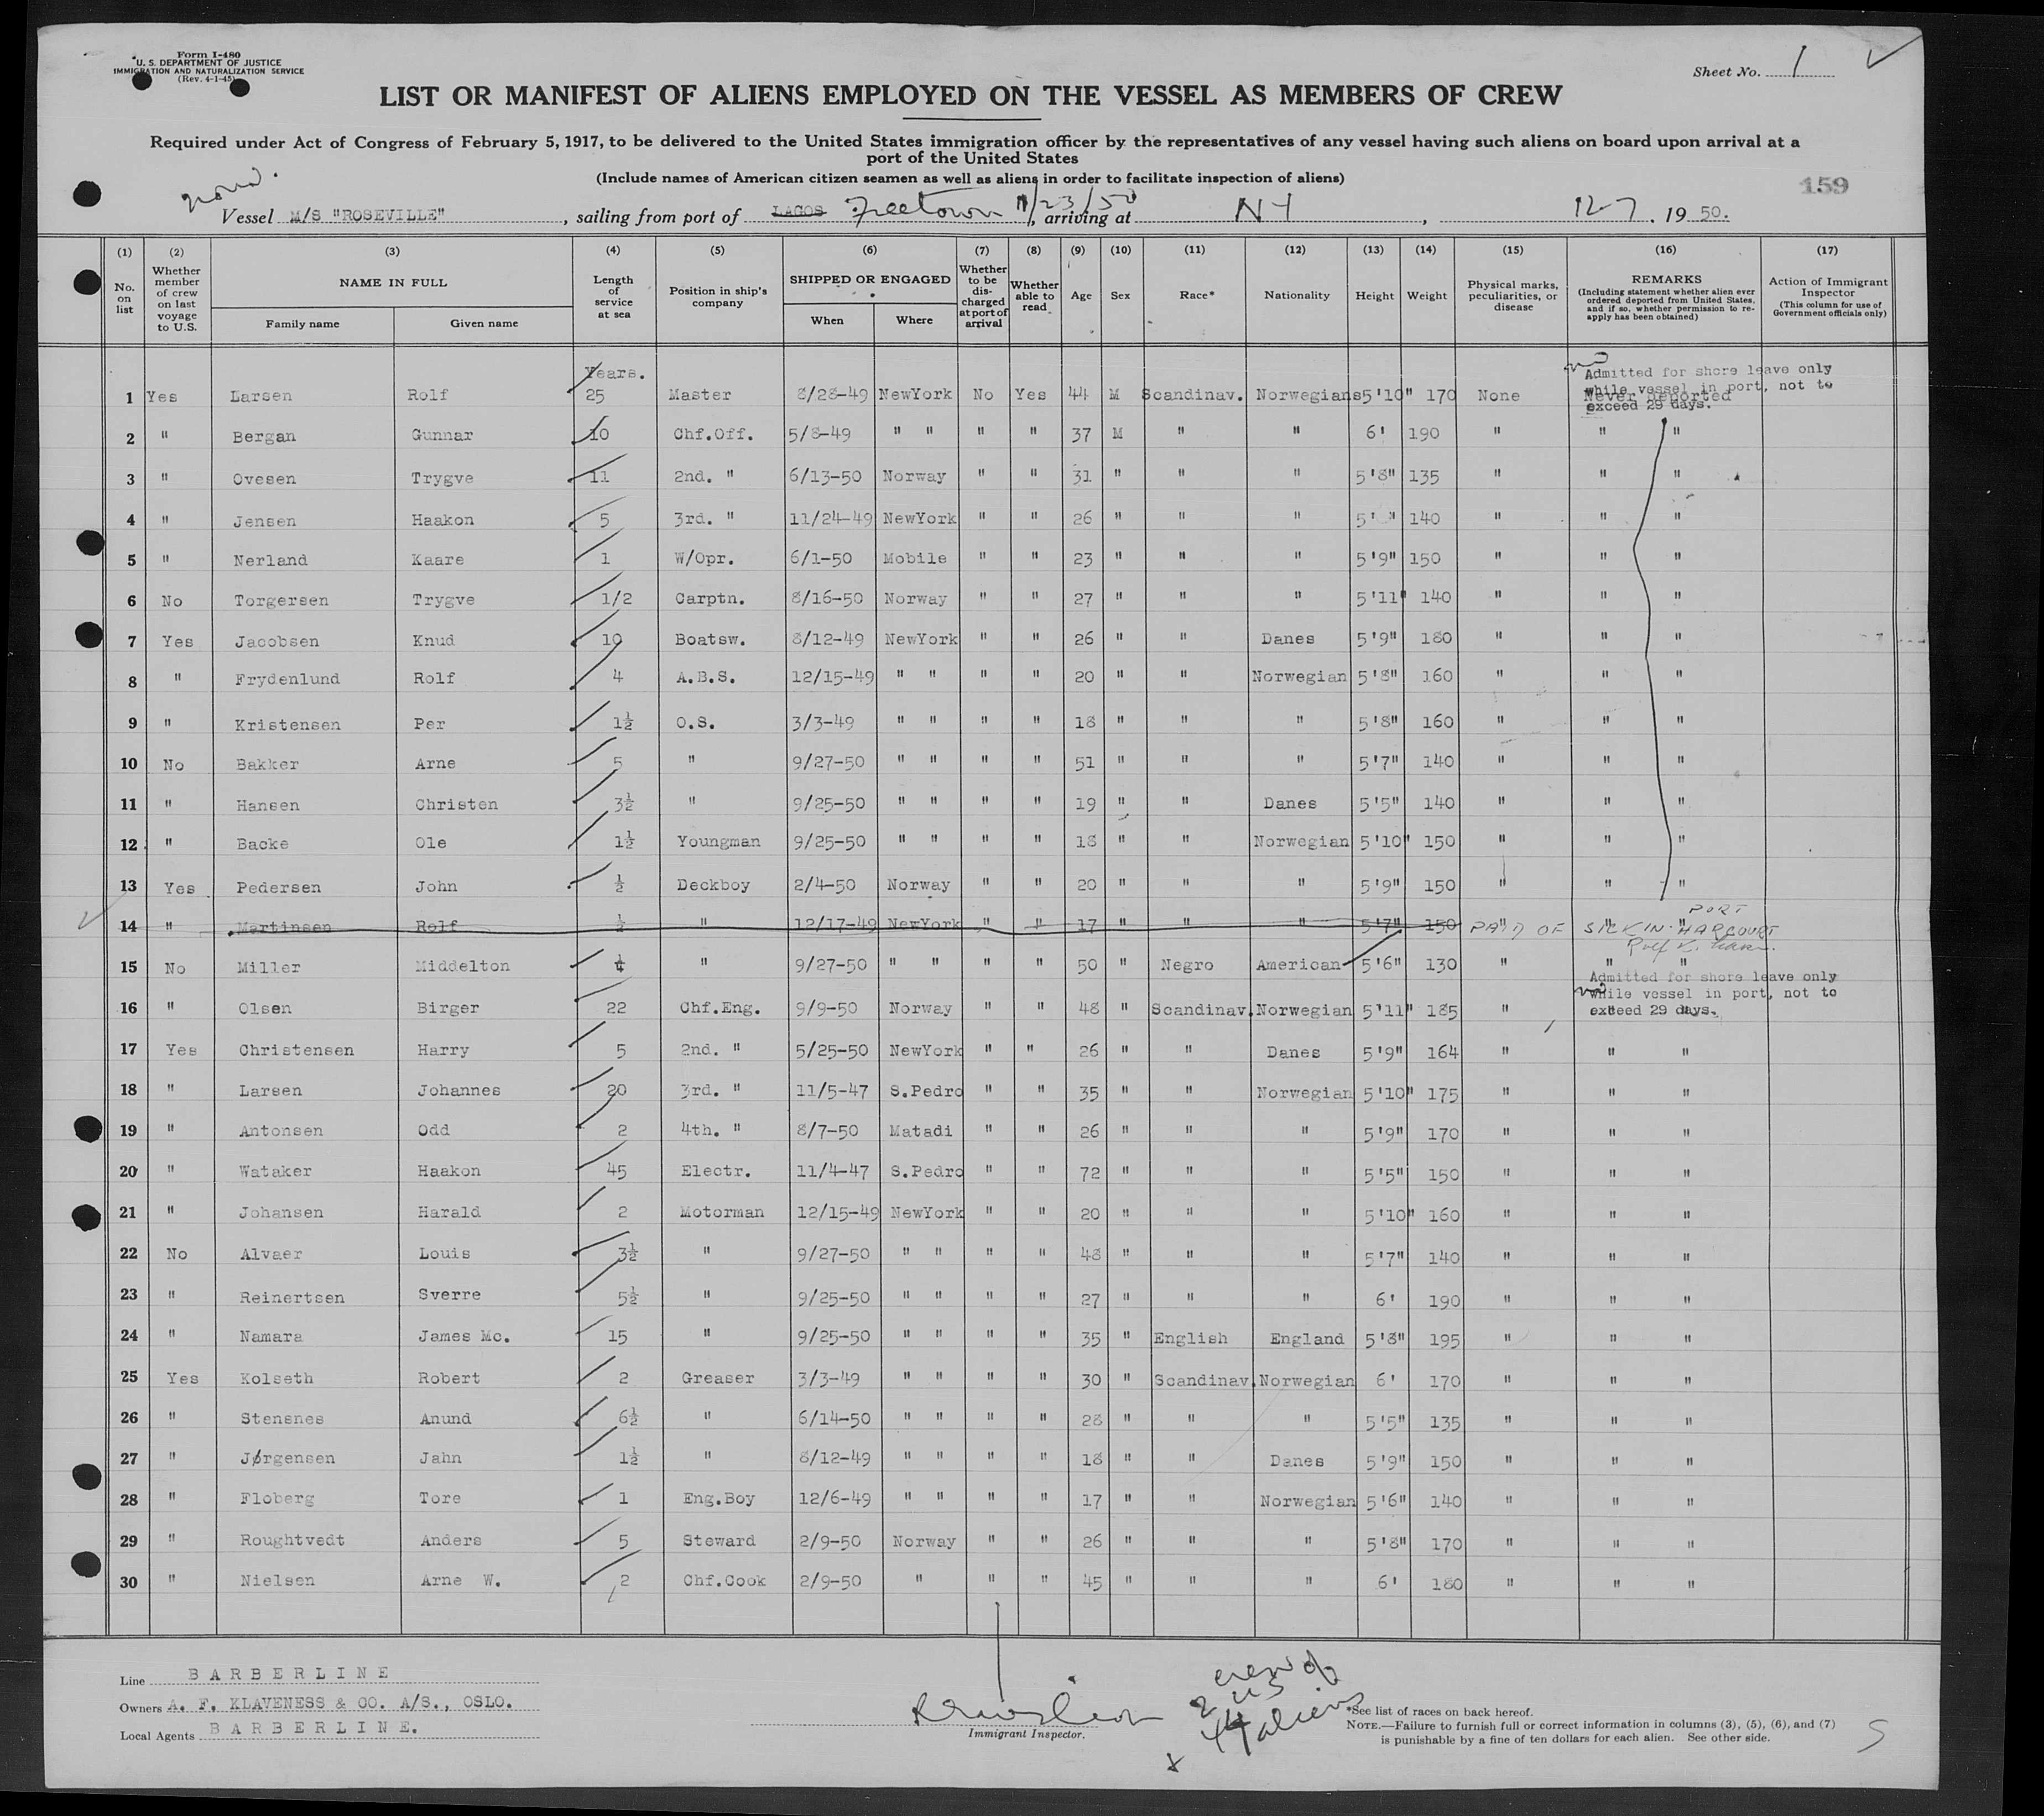 Form I-480
U. S. DEPARTMENT OF JUSTICE
IMMIGRATION AND NATURALIZATION SERVICE
(Rev. 4-1-45)
Sheet No. 1
LIST OR MANIFEST OF ALIENS EMPLOYED ON THE VESSEL AS MEMBERS OF CREW
Required under Act of Congress of February 5, 1917, to be delivered to the United States immigration officer by the representatives of any vessel having such aliens on board upon arrival at a
port of the United States
(Include names of American citizen seamen as well as aliens in order to facilitate inspection of aliens)
159
Vessel M/S "ROSEVILLE", sailing from port of LAGOS Freetown 11/23/50, arriving at NY, 12-7, 1950.
(1) (2) (3) (4) (5) (6) (7) (8) (9) (10) (11) (12) (13) (14) (15) (16) (17)
No. on list Whether member of crew on last voyage to U.S. NAME IN FULL Family name Given name Length of service at sea Position in ship's company SHIPPED OR ENGAGED When Where Whether to be discharged at port of arrival Whether able to read Age Sex Race* Nationality Height Weight Physical marks, peculiarities, or disease REMARKS (Including statement whether alien ever ordered deported from United States, and if so, whether permission to reapply has been obtained) Action of Immigrant Inspector (This column for use of Government officials only)
Years.
Admitted for shore leave only
while vessel in port, not to
exceed 29 days.
1 Yes Larsen Rolf 25 Master 8/28-49 NewYork No Yes 44 M Scandinav. Norwegians 5'10" 170 None Never deported
2 " Bergan Gunnar 10 Chf.Off. 5/8-49 " " " " 37 M " " 6' 190 " " "
3 " Ovesen Trygve 11 2nd. " 6/13-50 Norway " " 31 " " " 5'8" 135 " " "
4 " Jensen Haakon 5 3rd. " 11/24-49 NewYork " " 26 " " " 5' " 140 " " "
5 " Nerland Kaare 1 W/Opr. 6/1-50 Mobile " " 23 " " " 5'9" 150 " " "
6 No Torgersen Trygve 1/2 Carptn. 8/16-50 Norway " " 27 " " " 5'11" 140 " " "
7 Yes Jacobsen Knud 10 Boatsw. 8/12-49 NewYork " " 26 " " Danes 5'9" 180 " " "
8 " Frydenlund Rolf 4 A.B.S. 12/15-49 " " " " 20 " " Norwegian 5'8" 160 " " "
9 " Kristensen Per 1½ O.S. 3/3-49 " " " " 18 " " " 5'8" 160 " " "
10 No Bakker Arne 5 " 9/27-50 " " " " 51 " " " 5'7" 140 " " "
11 " Hansen Christen 3½ " 9/25-50 " " " " 19 " " Danes 5'5" 140 " " "
12 " Backe Ole 1½ Youngman 9/25-50 " " " " 18 " " Norwegian 5'10" 150 " " "
13 Yes Pedersen John ½ Deckboy 2/4-50 Norway " " 20 " " " 5'9" 150 " " "
14 " Martinsen Rolf ½ " 12/17-49 NewYork " " 17 " " " 5'7" 150 " " " PAID OF SICK IN PORT HARCOURT
15 No Miller Middelton ¼ " 9/27-50 " " " " 50 " Negro American 5'6" 130 " " "
Admitted for shore leave only
while vessel in port, not to
exceed 29 days.
16 " Olsen Birger 22 Chf.Eng. 9/9-50 Norway " " 48 " Scandinav. Norwegian 5'11" 185 " " "
17 Yes Christensen Harry 5 2nd. " 5/25-50 NewYork " " 26 " " Danes 5'9" 164 " " "
18 " Larsen Johannes 20 3rd. " 11/5-47 S.Pedro " " 35 " " Norwegian 5'10" 175 " " "
19 " Antonsen Odd 2 4th. " 8/7-50 Matadi " " 26 " " " 5'9" 170 " " "
20 " Wataker Haakon 45 Electr. 11/4-47 S.Pedro " " 72 " " " 5'5" 150 " " "
21 " Johansen Harald 2 Motorman 12/15-49 NewYork " " 20 " " " 5'10" 160 " " "
22 No Alvaer Louis 3½ " 9/27-50 " " " " 48 " " " 5'7" 140 " " "
23 " Reinertsen Sverre 5½ " 9/25-50 " " " " 27 " " " 6' 190 " " "
24 " Namara James Mc. 15 " 9/25-50 " " " " 35 " English England 5'8" 195 " " "
25 Yes Kolseth Robert 2 Greaser 3/3-49 " " " " 30 " Scandinav. Norwegian 6' 170 " " "
26 " Stensnes Anund 6½ " 6/14-50 " " " " 28 " " " 5'5" 135 " " "
27 " Jørgensen Jahn 1½ " 8/12-49 " " " " 18 " " Danes 5'9" 150 " " "
28 " Floberg Tore 1 Eng.Boy 12/6-49 " " " " 17 " " Norwegian 5'6" 140 " " "
29 " Roughtvedt Anders 5 Steward 2/9-50 Norway " " 26 " " " 5'8" 170 " " "
30 " Nielsen Arne W. 2 Chf.Cook 2/9-50 " " " 45 " " " 6' 180 " " "
Line BARBERLINE
Owners A. F. KLAVENESS & CO. A/S., OSLO.
Local Agents BARBERLINE.
Immigrant Inspector.
crew of
2 US
44 aliens
*See list of races on back hereof.
NOTE.—Failure to furnish full or correct information in columns (3), (5), (6), and (7)
is punishable by a fine of ten dollars for each alien. See other side.